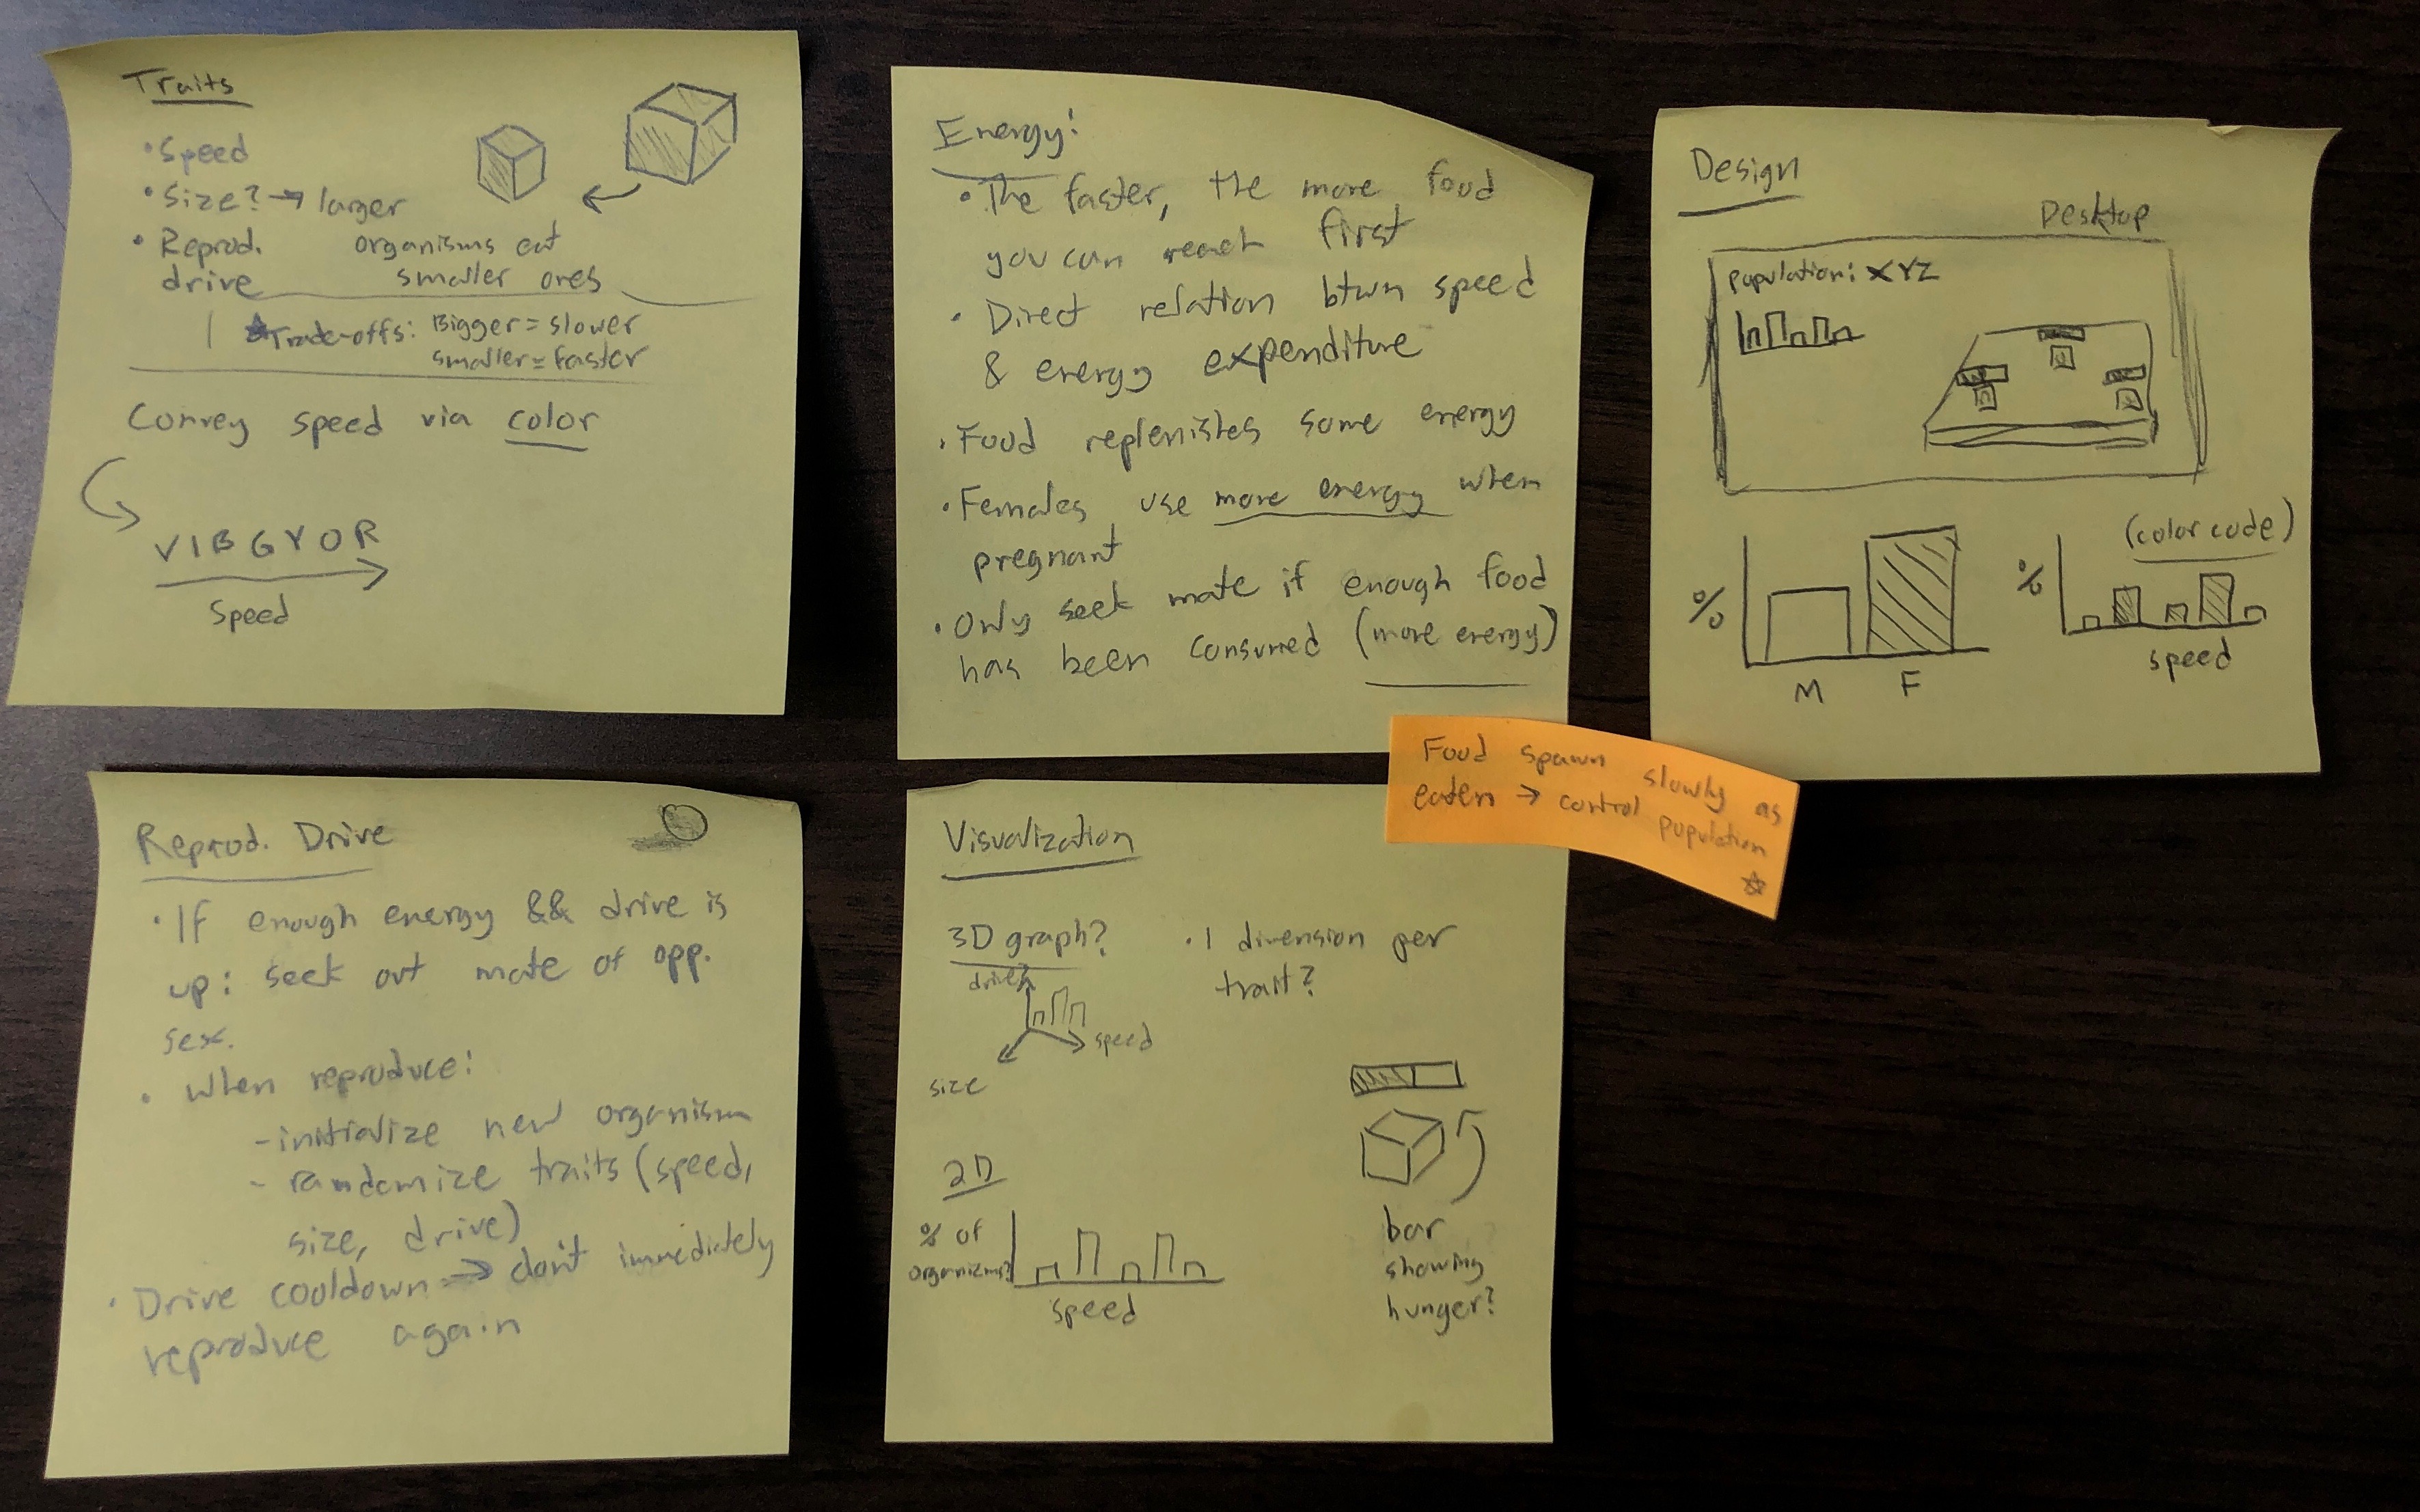 Traits
• Speed
• Size? → larger
organisms eat
smaller ones
• Reprod.
drive
☆ Trade-offs: Bigger = slower
smaller = faster
Convey speed via color
VIBGYOR
Speed
Energy:
• The faster, the more food
you can reach first
• Direct relation btwn speed
& energy expenditure
• Food replenishes some energy
• Females use more energy when
pregnant
• Only seek mate if enough food
has been consumed (more energy)
Design
Desktop
Population: XYZ
%
M F
(color code)
%
speed
Food spawn slowly as
eaten → control population
☆
Reprod. Drive
• If enough energy && drive is
up: seek out mate of opp.
sex.
• When reproduce:
- initialize new organism
- randomize traits (speed,
size, drive)
• Drive cooldown → don't immediately
reproduce again
Visualization
3D graph?
• 1 dimension per
trait?
drive?
speed
size
2D
% of
organisms?
Speed
bar
showing
hunger?